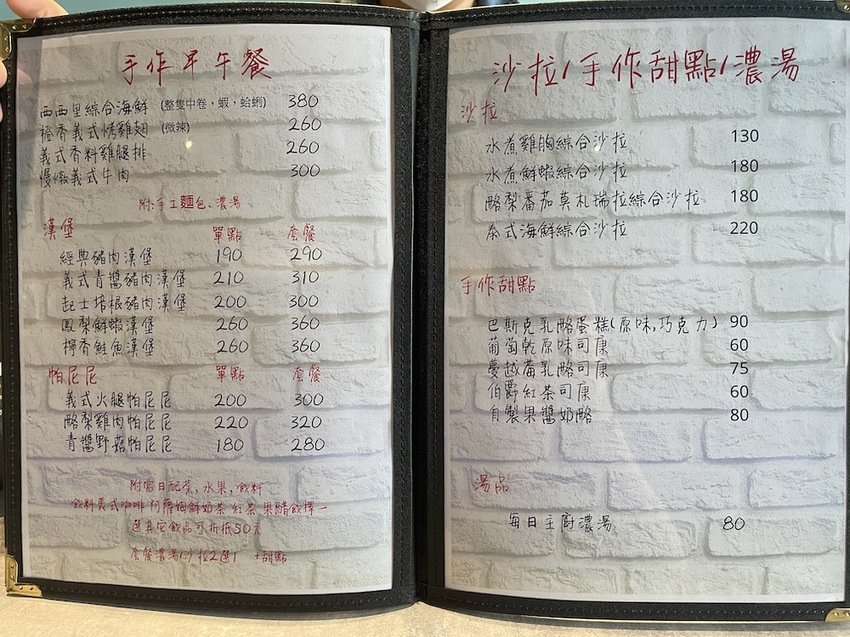 手作早午餐
西西里綜合海鮮 (整隻中卷,蝦,蛤蜊) 380
橙香義式烤雞翅 (微辣) 260
義式香料雞腿排 260
慢燉義式牛肉 300
附:手工麵包、濃湯
漢堡 單點 套餐
經典豬肉漢堡 190 290
義式青醬豬肉漢堡 210 310
起士培根豬肉漢堡 200 300
鳳梨鮮蝦漢堡 260 360
檸香鮭魚漢堡 260 360
帕尼尼 單點 套餐
義式火腿帕尼尼 200 300
酪梨雞肉帕尼尼 220 320
青醬野菇帕尼尼 180 280
附當日配菜,水果,飲料
飲料美式咖啡 阿薩姆鮮奶茶 紅茶 果醋飲擇一
選其它飲品可折抵50元
套餐濃湯/沙拉2選1 +甜點
沙拉/手作甜點/濃湯
沙拉
水煮雞胸綜合沙拉 130
水煮鮮蝦綜合沙拉 180
酪梨番茄莫札瑞拉綜合沙拉 180
泰式海鮮綜合沙拉 220
手作甜點
巴斯克乳酪蛋糕(原味,巧克力) 90
葡萄乾原味司康 60
蔓越莓乳酪司康 75
伯爵紅茶司康 60
自製果醬奶酪 80
湯品
每日主廚濃湯 80